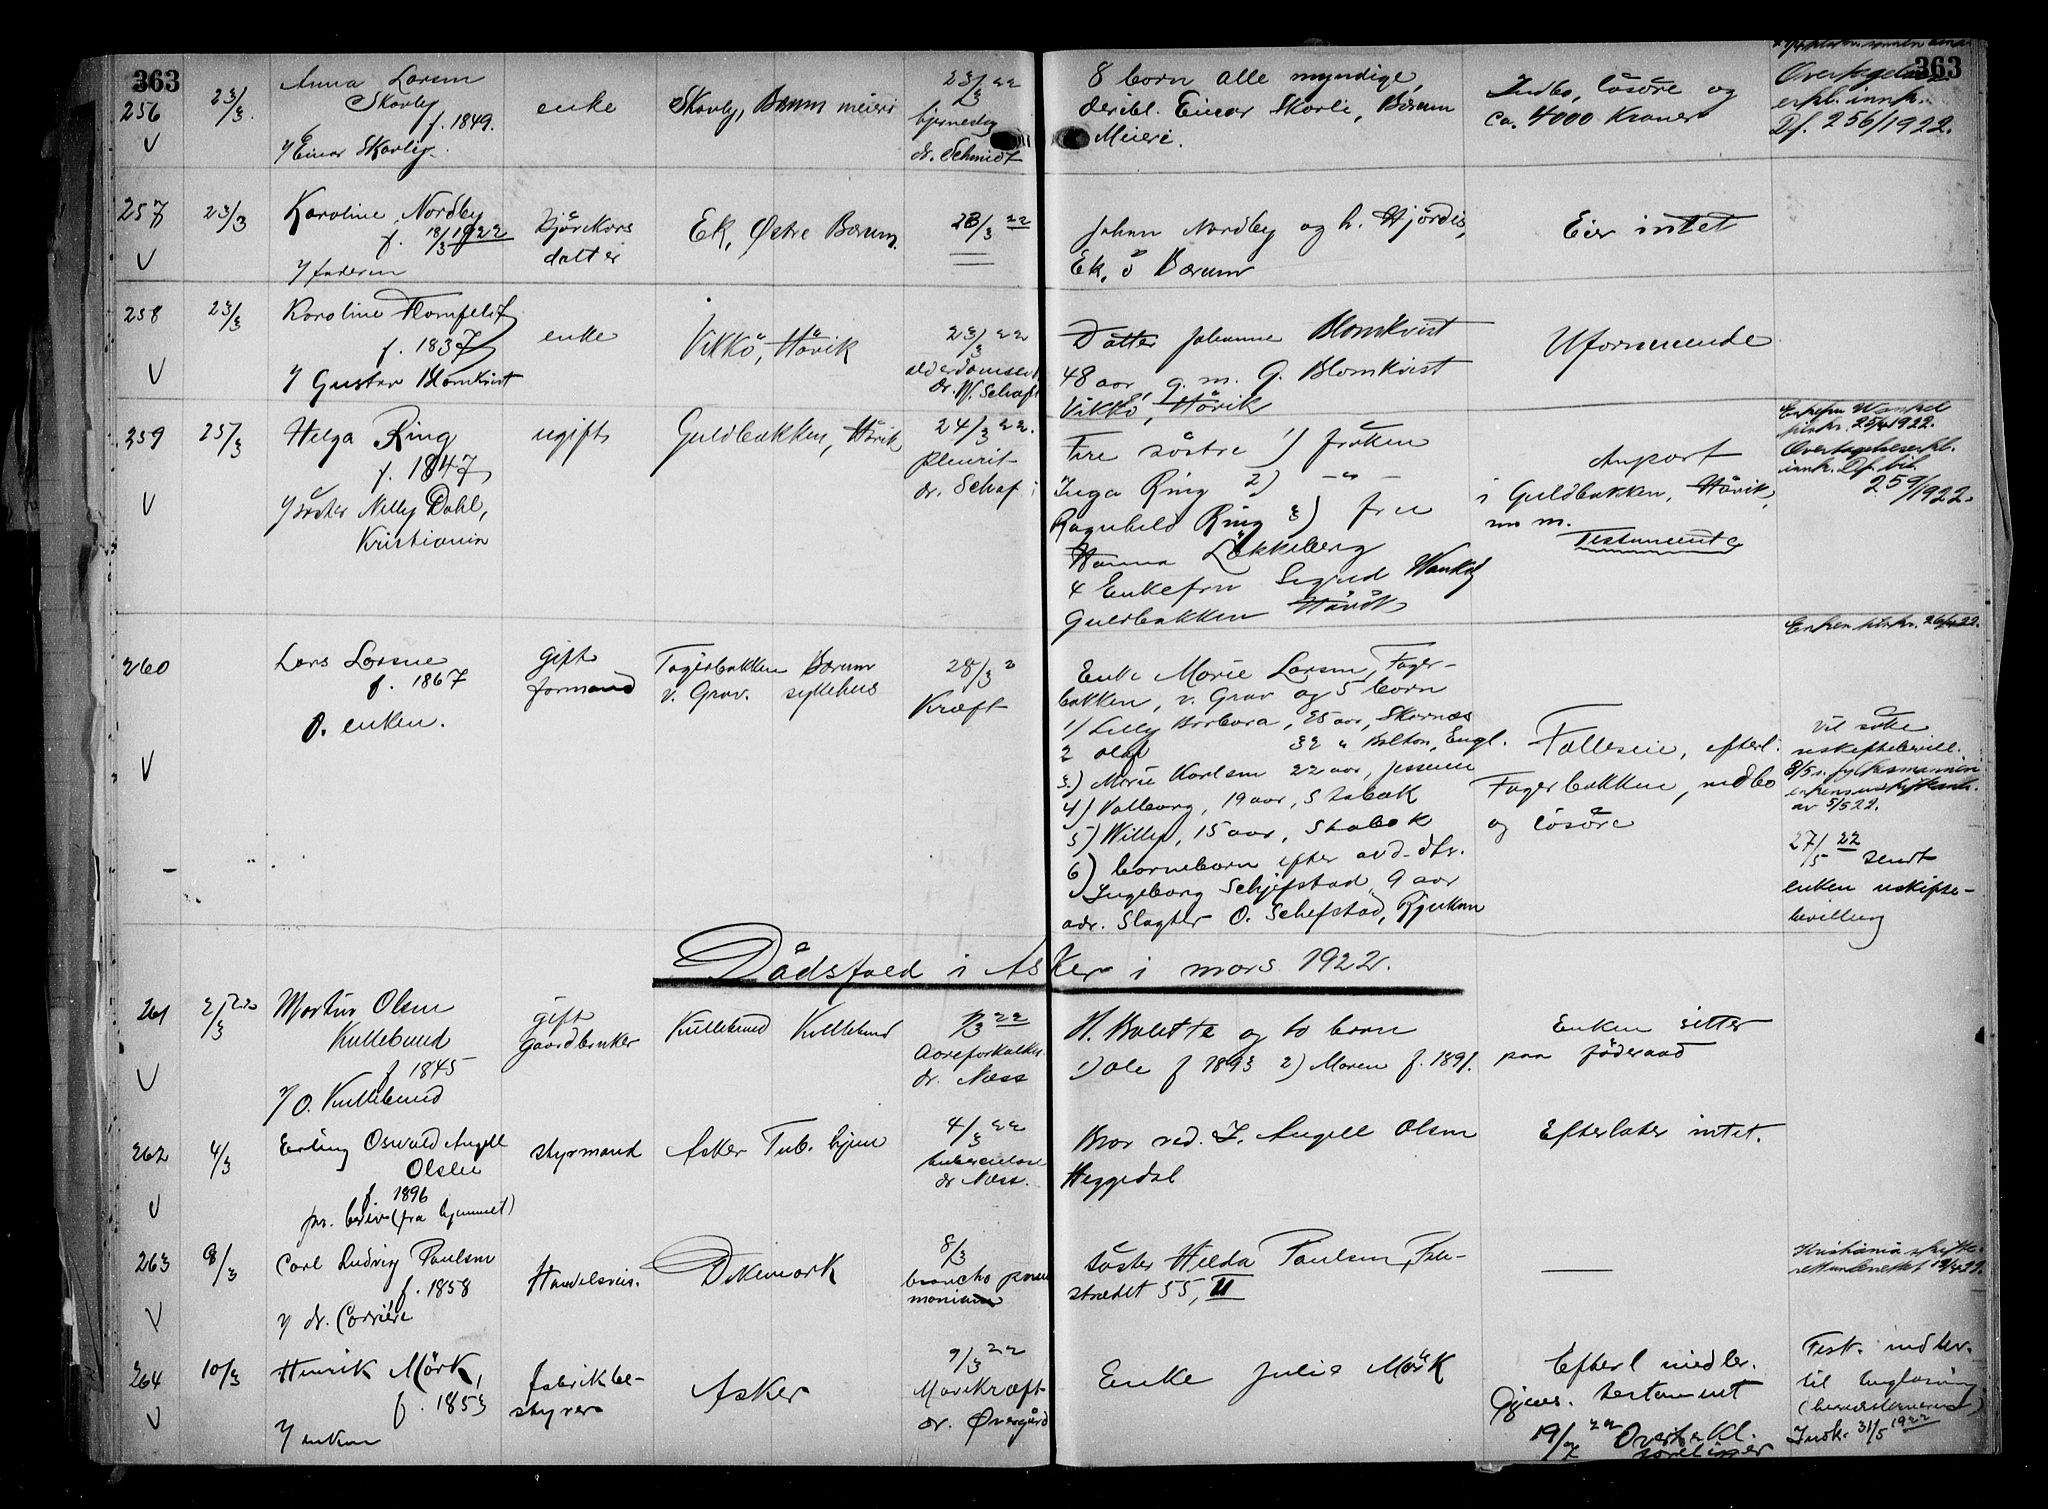 363
363
256
23/3.
Anna Larsen
Skovly
f. 1849.
v/ Einar Skovly.
enke
Skovly, Bærum meieri
23/3 22
hjerneslag
dr. Schmidt
8 börn alle myndige,
deribl. Einar Skovli, Bærum
Meieri.
Indbo, lösöre og
ca. 4000 Kroner
Overtagelses
erkl. innk.
Df. 256/1922.
257
23/3
Karoline Nordby
f. 18/3 1922
v/ faderen
datter
Ek, Østre Bærum.
23/3 22
Johan Nordby og h. Hjördis,
Ek, ö Bærum
Eier intet
258
23/3
Karoline
f. 1837
v/ Gustav Blomkvist
enke
Vikkö, Hövik
23/3 22
alderdomssv.
dr. W. Schaft
Datter Johanne Blomkvist
48 aar, g. m. G. Blomkvist
Vikkö, Hövik
Uformuende
259
25/3
Helga Ring
f. 1847
v/ söster Nelly Dahl,
Kristiania
ugift
Guldbakken, Hövik
24/3 22.
pleurit
dr. Schaf
Fire söstre 1) fröken
Inga Ring 2) - " -
Ragnhild Ring 3) fru
Hanna Lökkeberg
4 Enkefru Sigrid Wankel
Guldbakken Hövik
Anpart
i Guldbakken, Hövik,
m m.
Testamente
Enkefru Wankel
25/4 1922.
Overtagelseserkl.
innk. Df. bil.
259/1922.
260
Lars Larsen
f. 1867
v. enken.
gift
formand
Fagerbakken Bærum
v. Grav. sykehus
28/3 2
Kræft
Enke Marie Larsen, Fager-
bakken, v. Grav og 5 börn
1) Lilly Barbara, 25 aar, Skarnæs
2 Olaf 32 " Bolton, Engl.
3.) Marie Karlsen 22 aar,
4) Valborg, 19 aar, Stabæk
5) Willy, 15 aar, Stabæk
6) barnebarn efter avd. dtr.
Ingeborg Schjefstad, 9 aar
adr. Slagter O. Schefstad, Rjukan
Fælleseie, efterl.
Fagerbakken, indbo
og lösöre
Enken 26/4 22.
Vil söke
uskiftebevill.
av 5/5 22.
27/5 22 sendt
enken uskifte-
bevilling
Dödsfald i Asker i mars 1922.
261
2/3 22
Martin Olsen
Kullebund
f 1845
v/ O. Kullebund
gift
gaardbruker
Kullebund Kullebund
1/3 22
Aareforkalkn.
dr. Næss
H. Bolette og to barn
1) Ole f 1893 2) Maren f. 1891.
Enken sitter
paa föderaad
262
4/3
Erling Oswald Angell
Olsen
f 1896
pr. brev (fra hjemmet)
styrmand
Asker Tub. hjem
4/3 22
tuberculose
dr Næss.
Bror red. I. Angell Olsen
Heggedal
Efterlater intet.
263
8/3
Carl Ludvig Paulsen
f. 1858
v/ dr. Corriere
Handelsreis.
Dikemark
8/3
broncho pneu
monia
söster Hilda Paulsen,
strædet 55, II
Kristiania skifte-
264
10/3
Henrik Mörk,
f. 1853
v/ enken
fabrikbe-
styrer
Asker
9/3 22
Mavekræft
dr. Øvergård
Enke Julie Mörk
Efterl midler.
testament
19/7 22 Overt. Erkl.
Test. indlev.
til tinglæsning
Innk. 31/5 1922